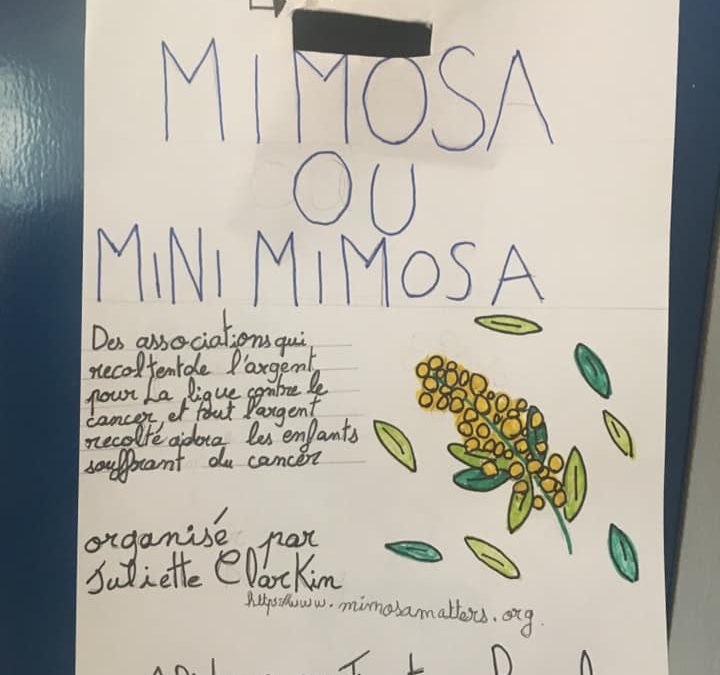 MIMOSA
OU
MiNi MiMOSA
Des associations qui
recoltent de l'argent
pour La ligue contre le
cancer, et tout l'argent
recolté aidera les enfants
souffrant du cancer
organisé par
Juliette Clarkin
https://www.mimosamatters.org